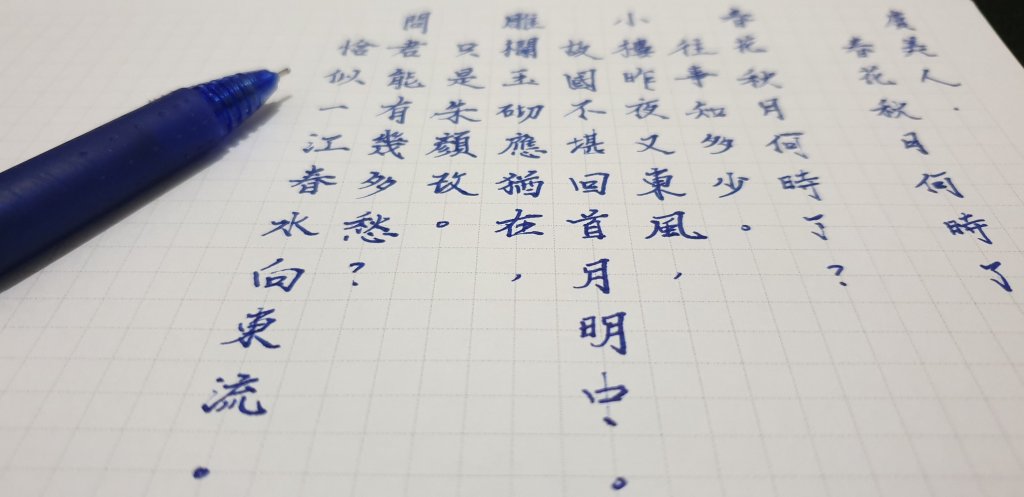 虞美人．
春花秋月何時了
春花秋月何時了？
往事知多少。
小樓昨夜又東風，
故國不堪回首月明中。
雕欄玉砌應猶在，
只是朱顏改。
問君能有幾多愁？
恰似一江春水向東流。